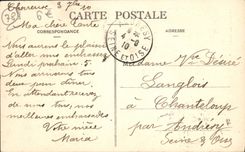 CARTE POSTALE
CORRESPONDANCE
ADRESSE
6€
Chevreuse, 3 7bre 10
Ma chère tante
Nous aurons le plaisir
d'aller vous embrasser
Lundi prochain 5. Nous
arriverons tous
deux pour dîner.
En attendant recevez
de nous tous nos
meilleures embrassades
Votre nièce
Maria
Madame Vve Désiré
Langlois
à Chanteloup
par Andrésy
Seine & Oise